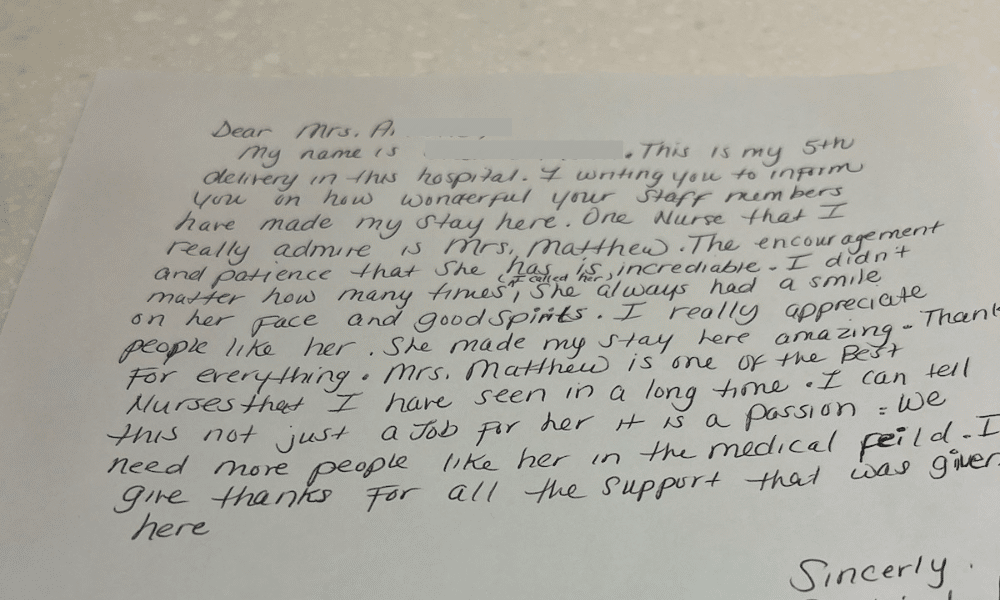 Dear Mrs. A.
My name is . This is my 5th
delivery in this hospital. I writing you to inform
you on how wonderful your staff members
have made my stay here. One Nurse that I
really admire is Mrs, Matthew. The encouragement
and patience that she has is, incrediable. I didn't
(I called her)
matter how many times, she always had a smile
on her face and good spirits. I really appreciate
people like her. She made my stay here amazing. Thank
For everything. Mrs. Matthew is one of the Best
Nurses that I have seen in a long time. I can tell
this not just a Job for her it is a passion. We
need more people like her in the medical feild. I
give thanks For all the support that was given
here
Sincerly